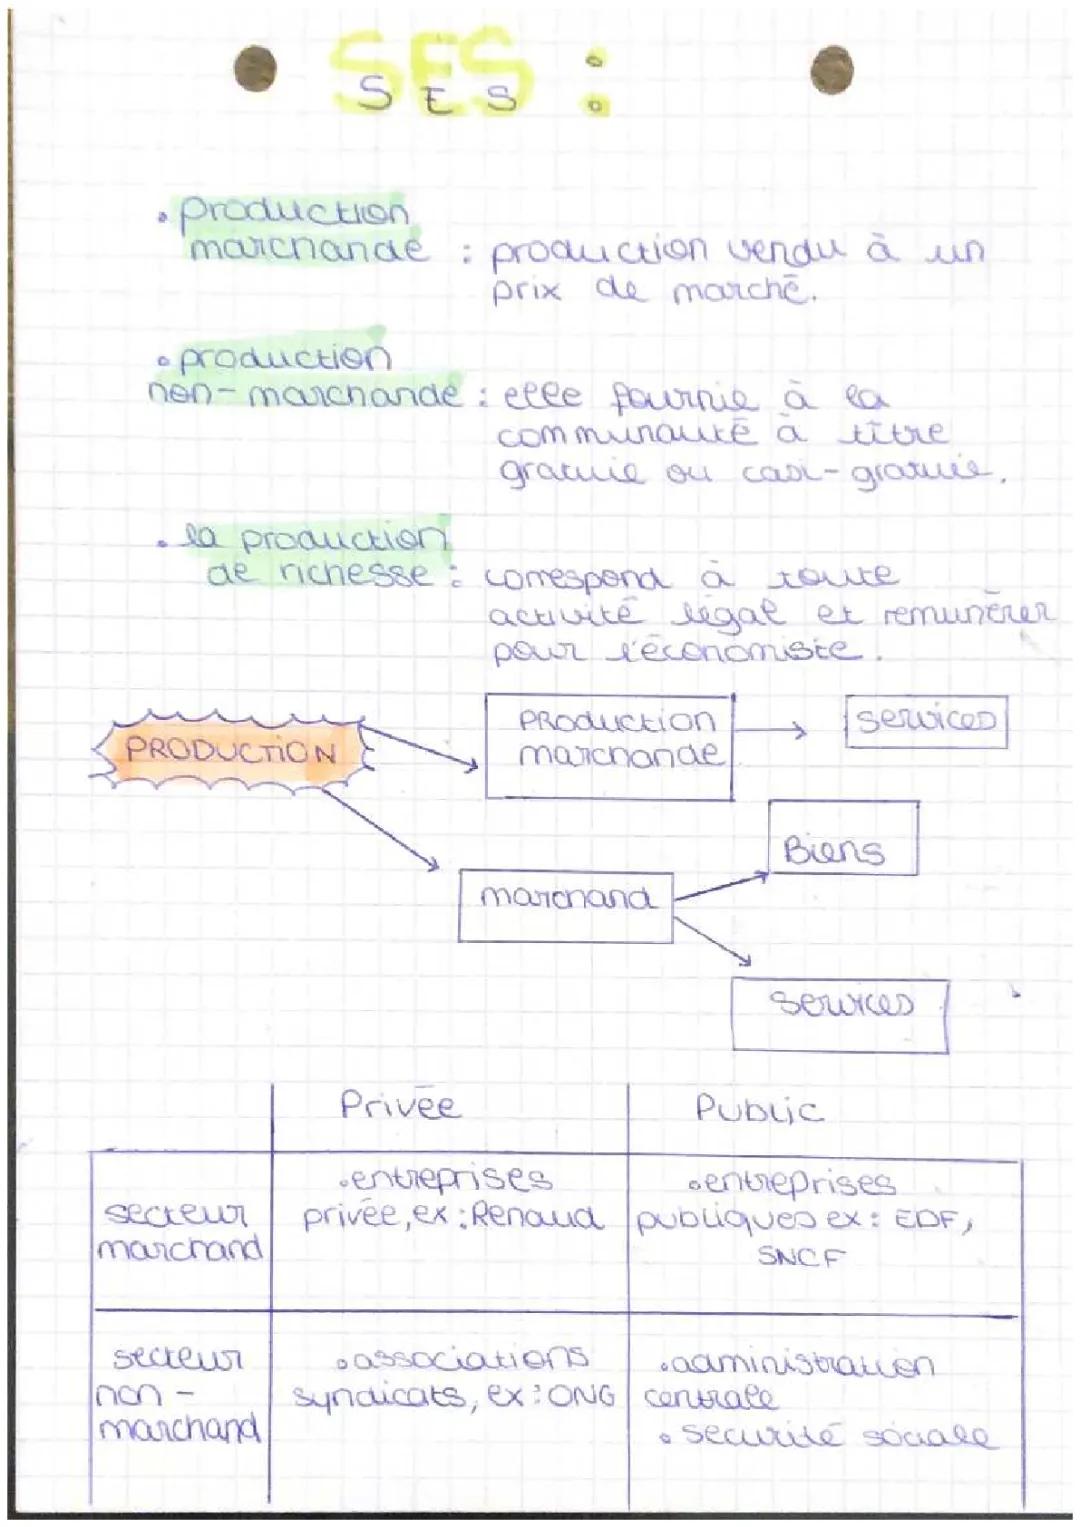 SES :
S E S
• production
marchande : production vendu à un
prix de marché.
• production
non-marchande : elle fournie à la
communauté à titre
gratuie ou casi-gratuie.
• la production
de richesse : correspond à toute
activité légal et remunérer
pour l'économiste.
PRODUCTION
PRODUCTION
marchande
services
Biens
marchand
services
Privée
Public
secteur
marchand
• entreprises
privée, ex : Renaud
• entreprises
publiques ex : EDF,
SNCF
secteur
non -
marchand
• associations
syndicats, ex : ONG
• administration
centrale
• securité sociale